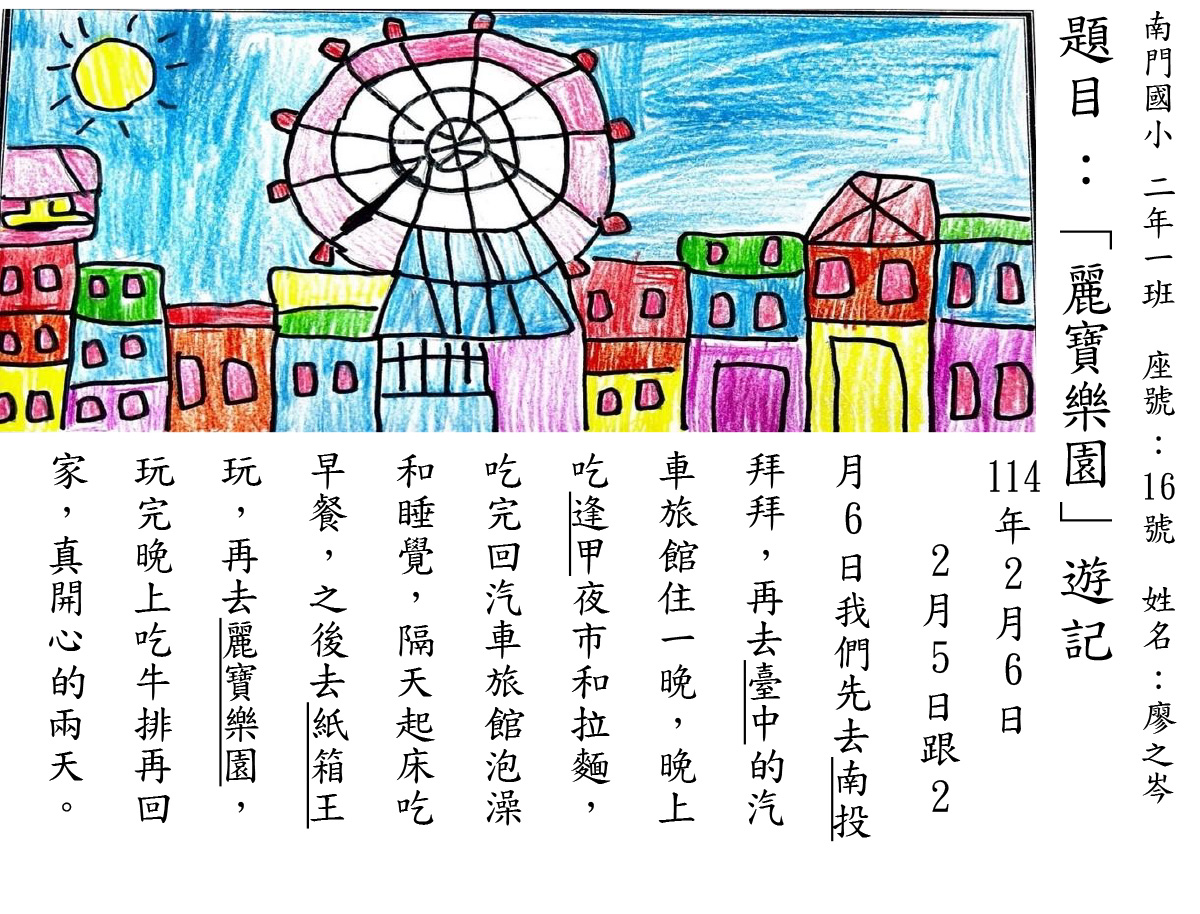 南門國小 二年一班 座號：16號 姓名：廖之岑
題目：「麗寶樂園」遊記
114年2月6日
2月5日跟2
月6日我們先去南投
拜拜，再去臺中的汽
車旅館住一晚，晚上
吃逢甲夜市和拉麵，
吃完回汽車旅館泡澡
和睡覺，隔天起床吃
早餐，之後去紙箱王
玩，再去麗寶樂園，
玩完晚上吃牛排再回
家，真開心的兩天。